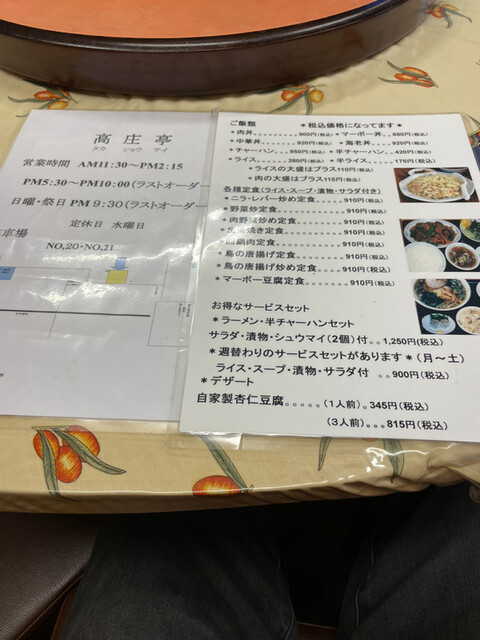 高庄亭
タカ ショウ テイ
営業時間 AM11:30～PM2:15
PM5:30～PM10:00(ラストオーダー
日曜・祭日 PM9:30(ラストオーダー
定休日 水曜日
車場 NO,20・NO,21
ご飯類 *税込価格になってます*
*肉丼。。。。。。。。900円(税込) *マーボー丼。。880円(税込)
*中華丼。。。。。。。920円(税込) *海老丼。。。。920円(税込)
*チャーハン。。。。850円(税込) *半チャーハン。。420円(税込)
*ライス。。。。。。280円(税込) *半ライス。。175円(税込)
*ライスの大盛はプラス110円(税込)
*肉の大盛はプラス115円(税込)
各種定食(ライス・スープ・漬物・サラダ付き)
*ニラ・レバー炒め定食。。。。910円(税込)
*野菜炒定食。。。。。。。。910円(税込)
*肉野菜炒め定食。。。。。。910円(税込)
焼き定食。。。。。。。910円(税込)
鍋肉定食。。。。。。。。910円(税込)
*鳥の唐揚げ定食。。。。。。910円(税込)
*鳥の唐揚げ炒め定食。。。。910円(税込)
*マーボー豆腐定食。。。。。。910円(税込)
お得なサービスセット
*ラーメン・半チャーハンセット
サラダ・漬物・シュウマイ(2個)付。。1,250円(税込)
*週替わりのサービスセットがあります*(月～土)
ライス・スープ・漬物・サラダ付 。。900円(税込)
*デザート
自家製杏仁豆腐。。。。。(1人前)。345円(税込)
(3人前)。。。815円(税込)